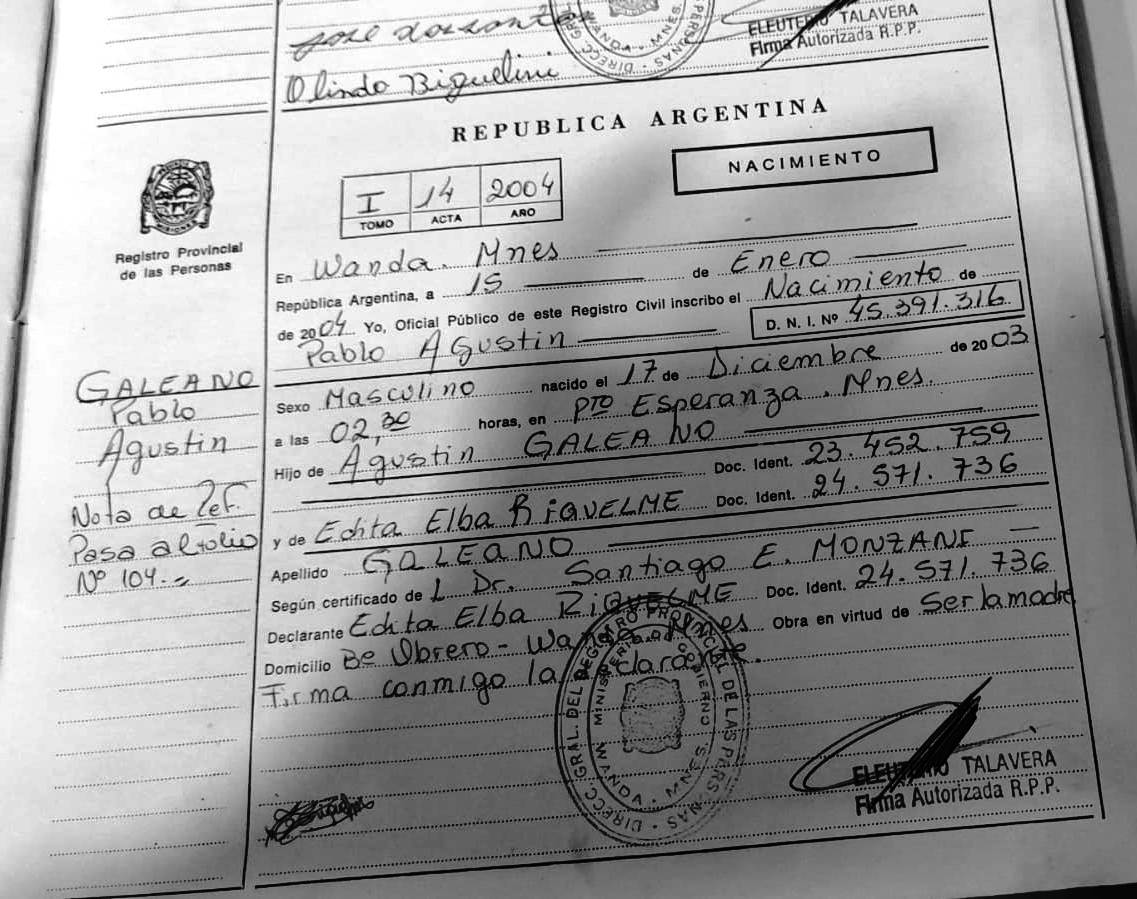 José dos
Olindo Biguelini
ELEUTERIO TALAVERA
Firma Autorizada R.P.P.
REPUBLICA ARGENTINA
NACIMIENTO
I 14 2004
TOMO ACTA AÑO
Registro Provincial
de las Personas
En Wanda. Mnes
República Argentina, a 15 de Enero
de 2004 Yo, Oficial Público de este Registro Civil inscribo el Nacimiento de
Pablo Agustin D. N. I. Nº 45.391.316
GALEANO
Pablo
Agustin
Nota de Ref.
Pasa al folio
Nº 104.
Sexo Masculino nacido el 17 de Diciembre de 2003
a las 02,30 horas, en Pto Esperanza. Mnes.
Hijo de Agustin GALEANO Doc. Ident. 23.452.759
y de Edita Elba RIQUELME Doc. Ident. 24.571.736
Apellido GALEANO
Según certificado de L Dr. Santiago E. MONZANI
Declarante Edita Elba RIQUELME Doc. Ident. 24.571.736
Domicilio Bº Obrero - Wanda. Mnes Obra en virtud de Ser la madre
Firma conmigo la declarante.
DIRECC. GRAL. DEL REGISTRO PROVINCIAL DE LAS PERSONAS
MINISTERIO GOBIERNO
WANDA - MNES.
ELEUTERIO TALAVERA
Firma Autorizada R.P.P.